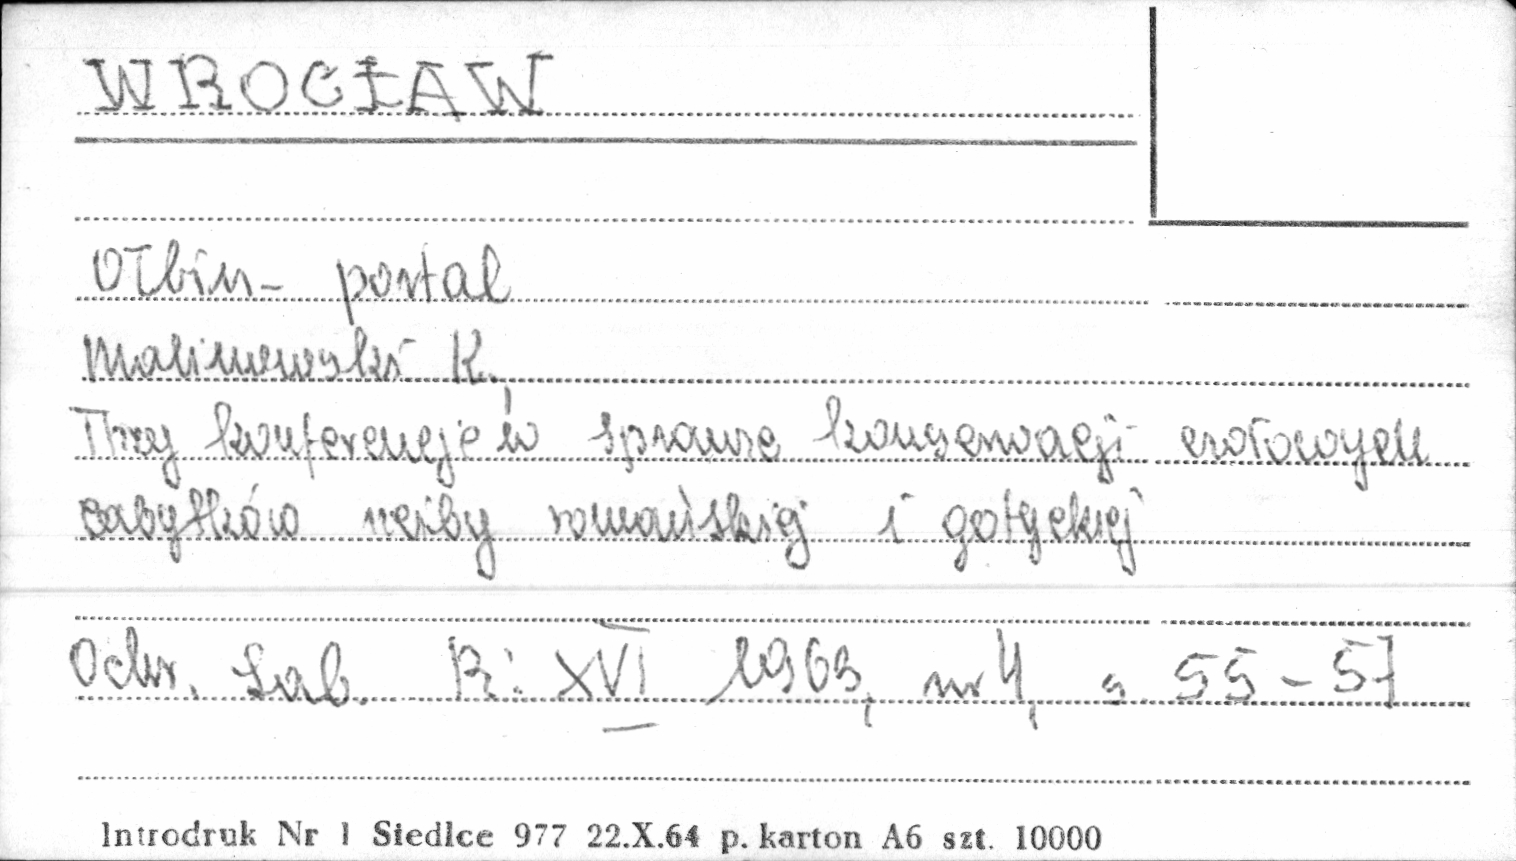 WROCŁAW
Ołbin - portal
Malinowski K.
Trzy konferencje w sprawie konserwacji czołowych
zabytków rzeźby romańskiej i gotyckiej
Ochr. Zab. R: XVI 1963, nr 4, s. 55-57
Introdruk Nr 1 Siedlce 977 22.X.64 p. karton A6 szt. 10000